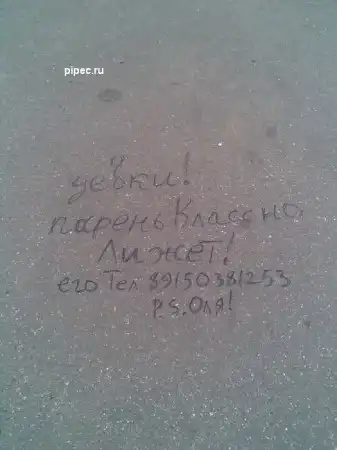 pipec.ru
девки!
парень Классно
Лижет!
его Тел 89150381253
P.S. Оля!